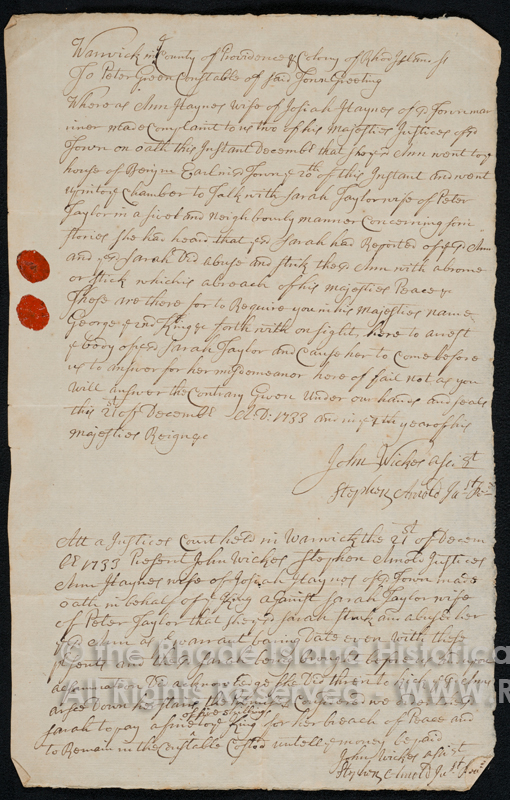 Warwick in ye County of Providence & Colony of Rhod Island ss
To Peter Green Constable of sd Town Greeting
Whereas Ann Haynes wife of Josiah Haynes of sd Town mar
iner made Complaint to us two of his Majesties Justices of sd
Town on oath this Instant Decembr that she ye sd Ann went to ye
house of Benjn Earl in sd Town ye 20th of this Instant and went
up into ye Chamber to Talk with Sarah Taylor wife of Peter
Taylor in a sivel and Neighbourly manner Concerning som
stories she had heard that ye sd Sarah had Reported of ye sd Ann
and ye sd Sarah Did abuse and strik the sd Ann with a brome
or stick which is a breach of his majesties Peace &
These are there for to Require you in his majesties name
George ye 2nd King & forth with on sight here to arrest
ye body of ye sd Sarah Taylor and Cause her to Come before
us to answer for her misdemeanor here of fail not as you
will answer the Contrary Given under our hands and seals
this 21st of Decembr A:D: 1733 and in ye 7th year of his
majesties Reigne &
John Wickes asist
Stephen Arnold Just Peace
Att a Justices Court held in Warwick the 21st of Decem
br 1733 Present John Wickes Stephen Arnold Justices
Ann Haynes wife of Josiah Haynes of sd Town made
oath in behalf of ye King against Sarah Taylor wife
of Peter Taylor that she ye sd Sarah strik and abuse her
ye sd Ann as ye warrant baring Date even with these
presents and the sd Sarah being brought before us upon
Did acknowledge she Did threten to
Down her stairs we
Sarah to pay a fine to ye King for her breach of Peace and
to Remain in the Constable Costod untell ye money be paid
John Wickes asist
Stephen Arnold Just Peace
© the Rhode Island Historica
All Rights Reserved - WWW.R